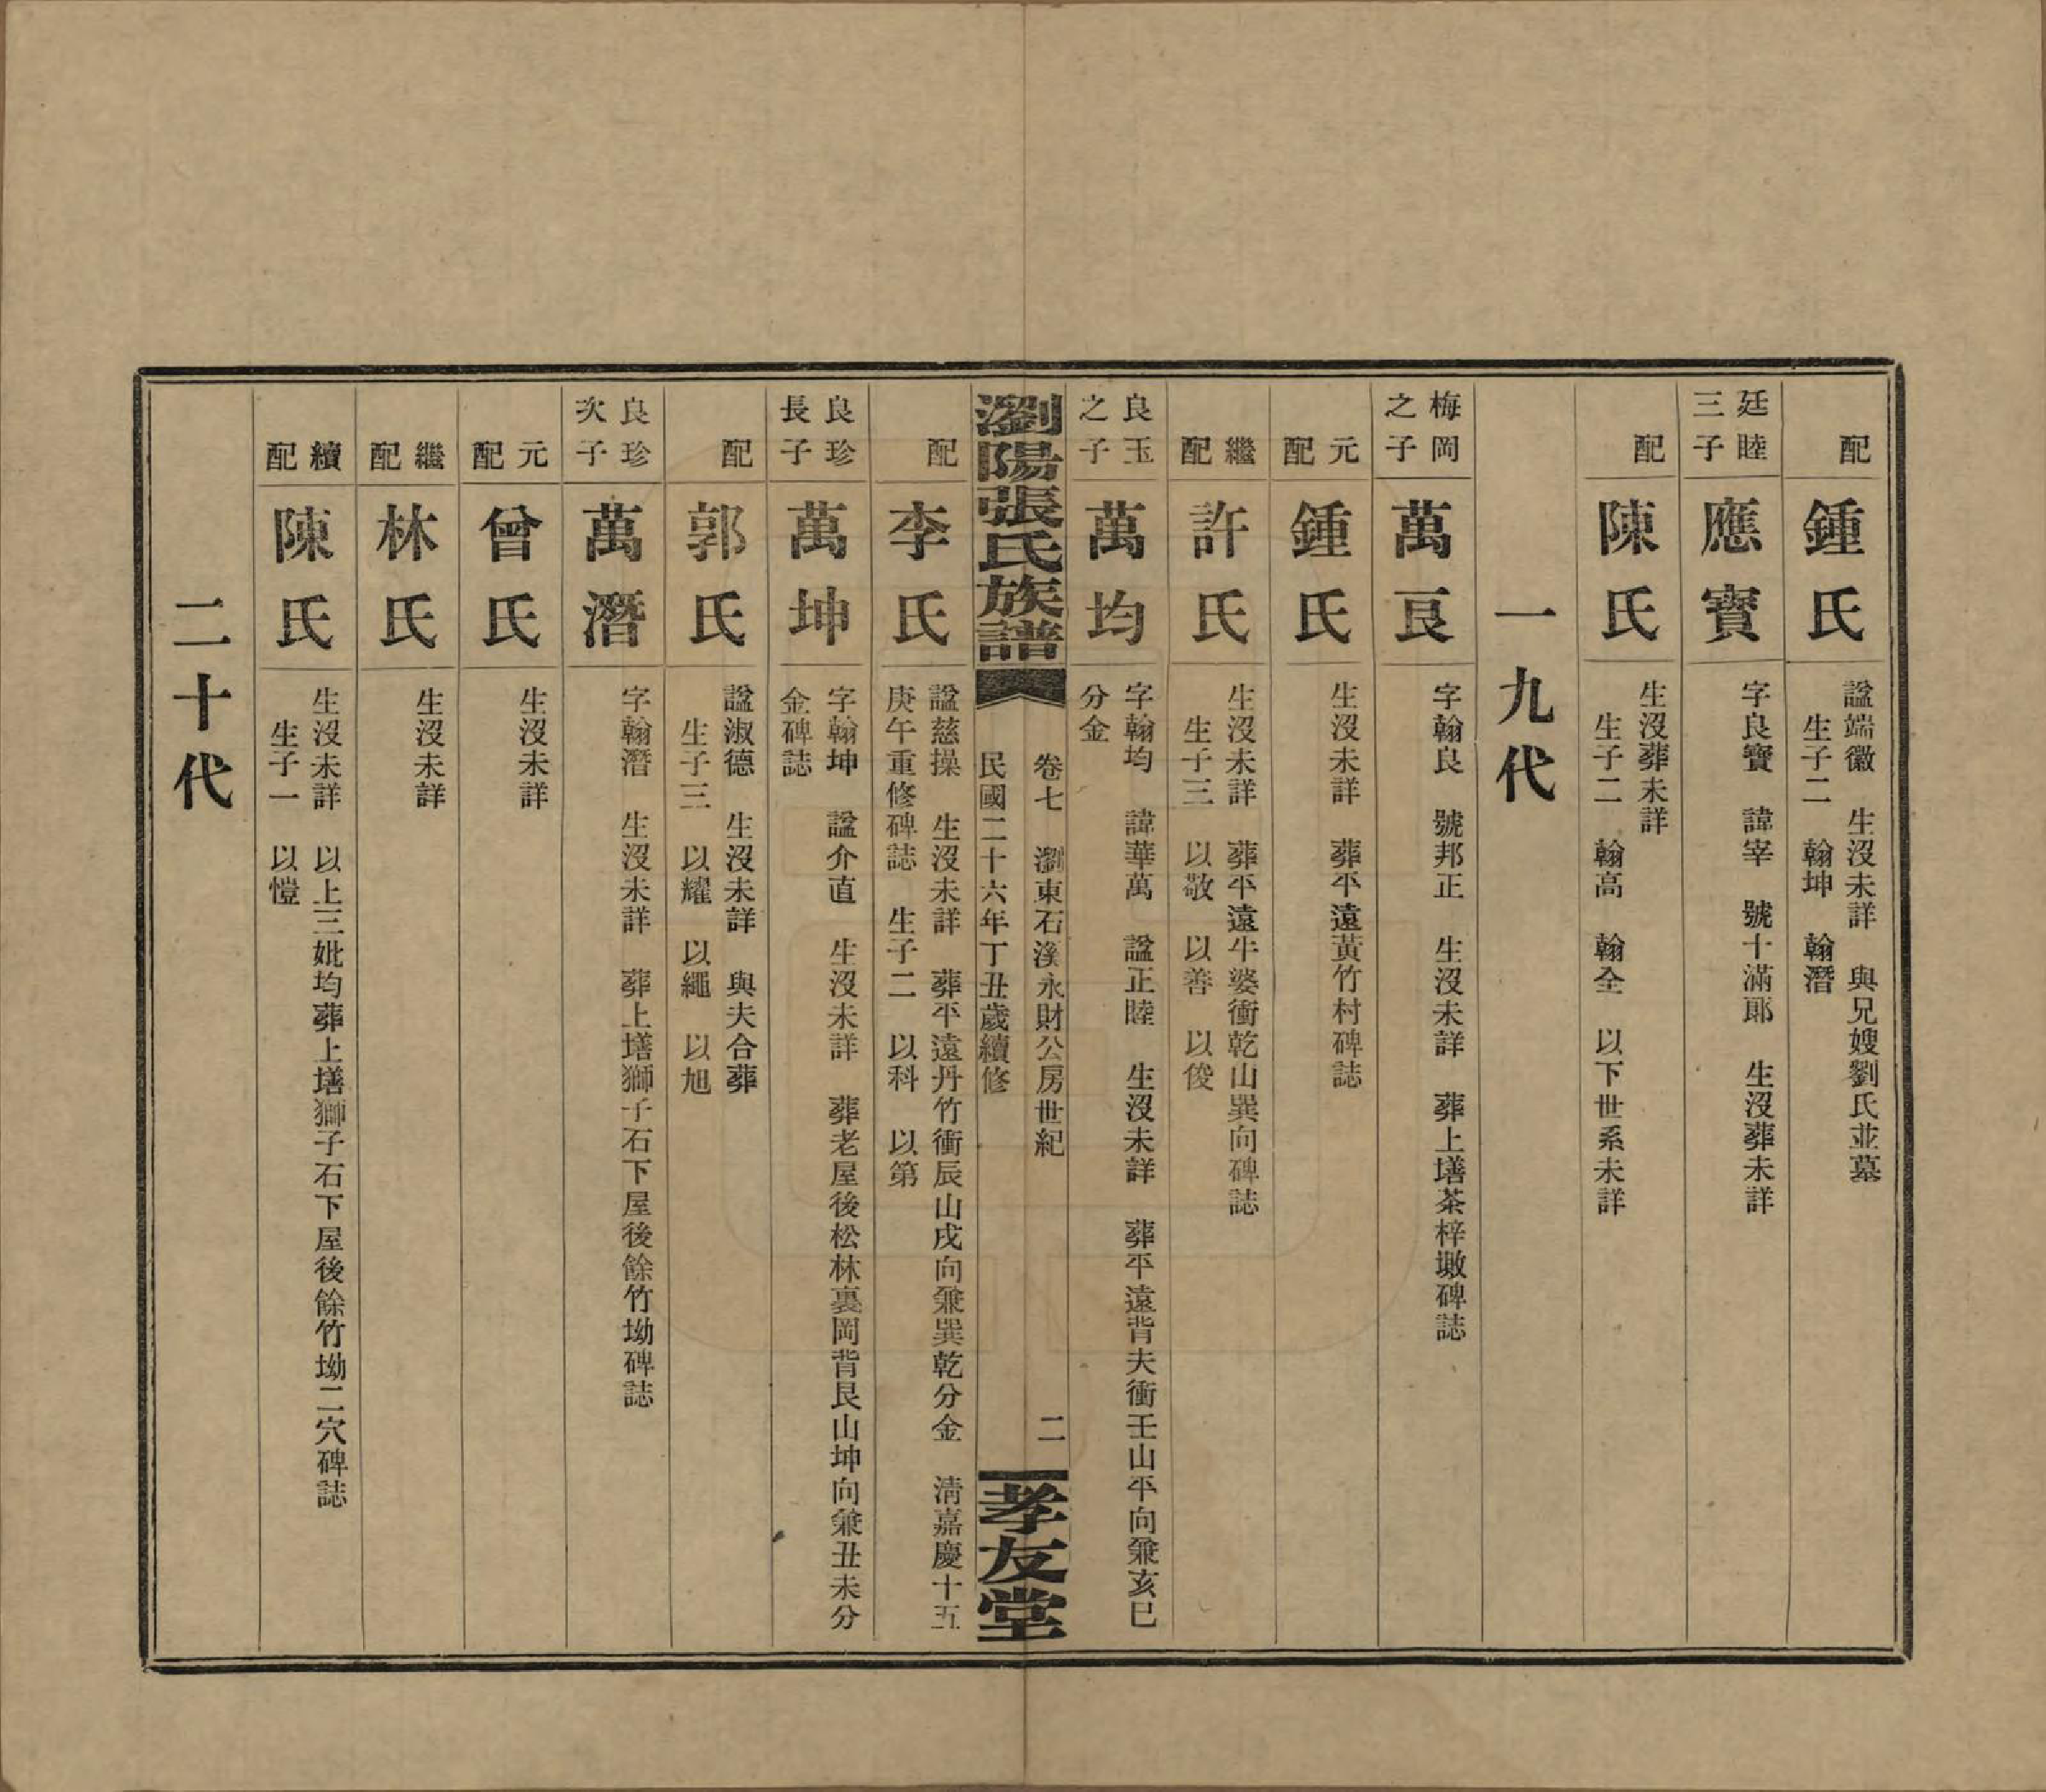 配
鍾氏
諡端徽　生沒未詳　與兄嫂劉氏並墓
生子二　翰坤　翰潛
廷睦
三子
應寶
字良寶　諱宰　號十滿郎　生沒葬未詳
配
陳氏
生沒葬未詳
生子二　翰高　翰全　以下世系未詳
一九代
梅岡
之子
萬良
字翰良　號邦正　生沒未詳　葬上墡茶梓墩碑誌
元
配
鍾氏
生沒未詳　葬平遠黃竹村碑誌
繼
配
許氏
生沒未詳　葬平遠牛婆衝乾山巽向碑誌
生子三　以敬　以善　以俊
良玉
之子
萬均
字翰均　諱華萬　諡正睦　生沒未詳　葬平遠背夫衝壬山平向兼亥巳
分金
瀏陽張氏族譜
卷七　瀏東石溪永財公房世紀　二
民國二十六年丁丑歲續修
孝友堂
配
李氏
諡慈操　生沒未詳　葬平遠丹竹衝辰山戌向兼巽乾分金　清嘉慶十五
庚午重修碑誌　生子二　以科　以第
良珍
長子
萬坤
字翰坤　諡介直　生沒未詳　葬老屋後松林裏岡背艮山坤向兼丑未分
金碑誌
配
郭氏
諡淑德　生沒未詳　與夫合葬
生子三　以耀　以繩　以旭
良珍
次子
萬潛
字翰潛　生沒未詳　葬上墡獅子石下屋後餘竹坳碑誌
元
配
曾氏
生沒未詳
繼
配
林氏
生沒未詳
續
配
陳氏
生沒未詳　以上三妣均葬上墡獅子石下屋後餘竹坳二穴碑誌
生子一　以愷
二十代